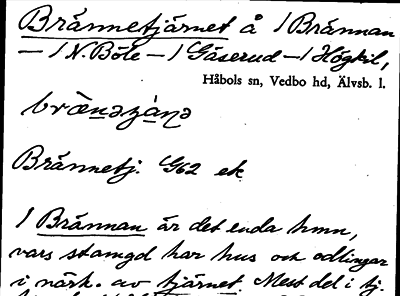 Brännetjärnet å 1 Brännan
— 1 N. Böle — 1 Gåserud — 1 Högkil,
Håbols sn, Vedbo hd, Älvsb. l.
Brännetj. G62 ek
1 Brännan är det enda hmn,
vars stamgd har hus och odlingar
i närh. av tjärnet. Mest del i tj.